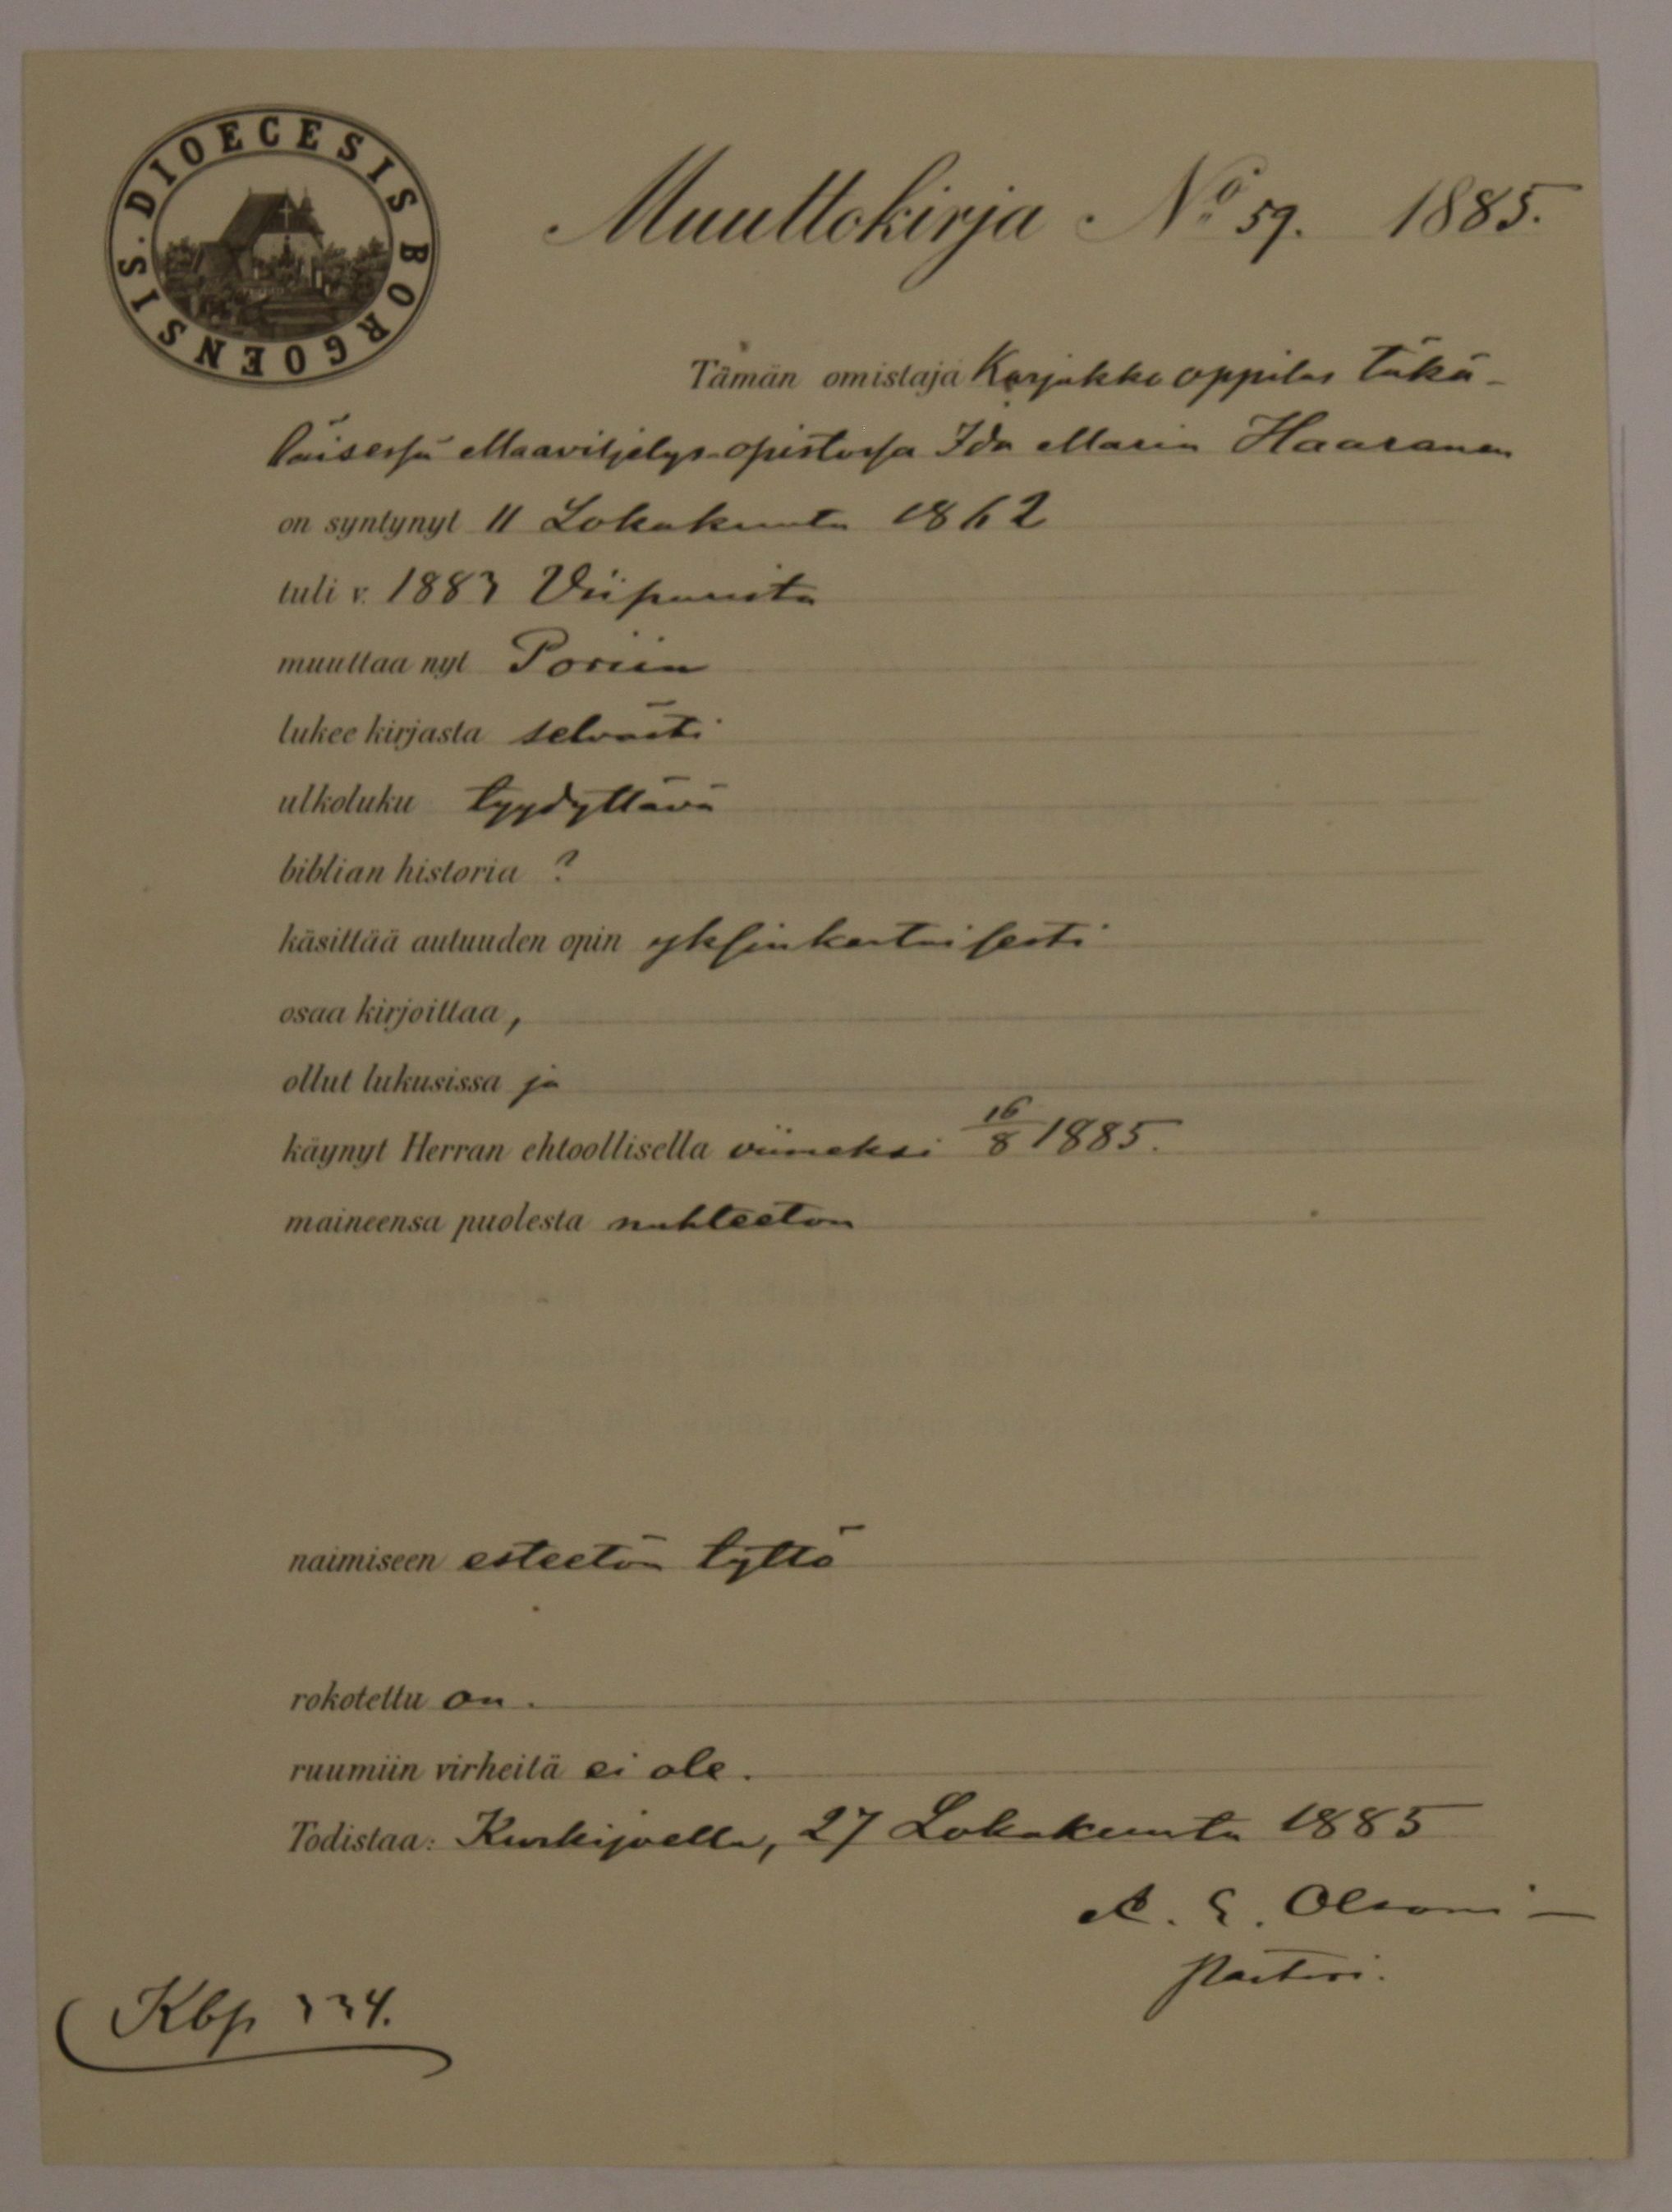 DIOECESIS BORGOENSIS.
Muuttokirja No 59. 1885.
Tämän omistaja Karjakko oppilas täkä-
läisessä Maaviljelys-opistossa Ida Maria Haaranen
on syntynyt 11 Lokakuuta 1862
tuli v. 1883 Viipurista
muuttaa nyt Poriin
lukee kirjasta selvästi
ulkoluku tyydyttävä
biblian historia ?
käsittää autuuden opin yksinkertaisesti
osaa kirjoittaa,
ollut lukusissa ja
käynyt Herran ehtoollisella viimeksi 16/8 1885.
maineensa puolesta nuhteeton
naimiseen esteetön tyttö
rokotettu on.
ruumiin virheitä ei ole.
Todistaa: Kurkijoella, 27 Lokakuuta 1885
A. E. Olsoni
pastori.
Kbp 334.